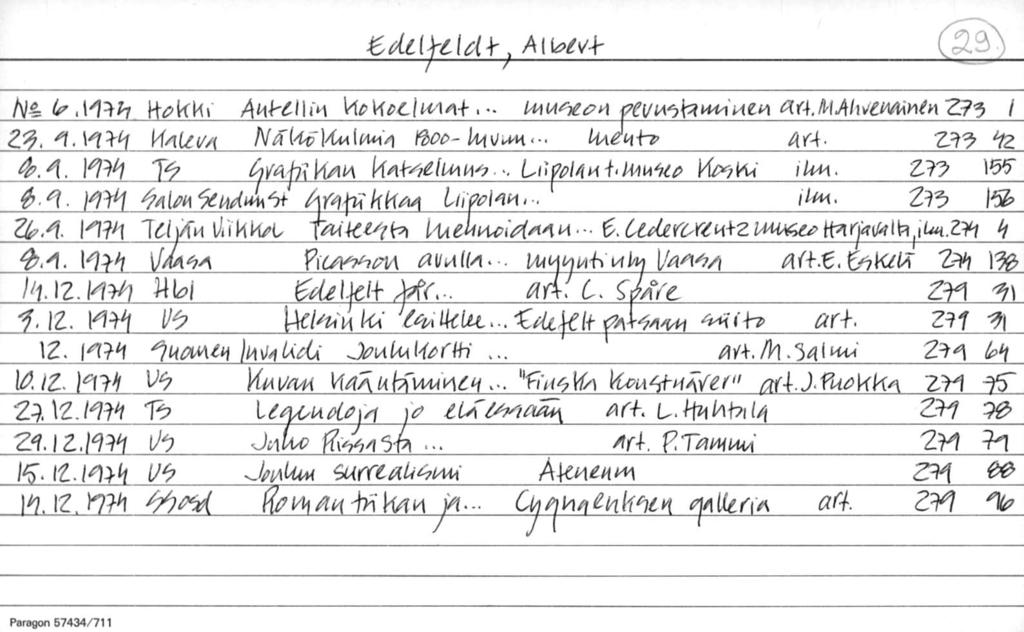 Edelfeldt, Albert 29.
№ 6.1974 Hokki Antellin kokoelmat... museon perustaminen art. M.Ahvenainen 273 1
23.9.1974 Kaleva Näkökulmia 1800-luvun... art. 273 42
8.9.1974 TS Grafiikan katselmus... Liipolan t.museo Koski ilm. 273 155
8.9.1974 Salon Seudun St Grafiikkaa Liipolan... ilm. 273 156
26.9.1974 Teljän Viikkol Taiteesta huehnoidaan... E.Cedercreutz museo Harjavalta, ilm. 274 4
8.9.1974 Vaasa Picasson avulla... myyntinäy Vaasa art. E. Eskelä 274 138
14.12.1974 Hbl Edelfelt får... art. C. Spåre 279 31
3.12.1974 US Helsinki laittelee... Edefelt patsaan siirto art. 279 31
12.1974 Suomen Invalidi Joulukortti ... art. M. Salmi 279 64
10.12.1974 US Kuvan kääntäminen... "Finska Konstnärer" art. J. Puokka 279 75
27.12.1974 TS Legendoja jo eläessään art. L. Huhtala 279 78
29.12.1974 US Juho Rissasta ... art. P. Tammi 279 79
15.12.1974 US Joulun surrealismi Ateneum 279 88
14.12.1974 Romantiikan ja... Cygnaeuksen galleria art. 279 96
Paragon 57434/711